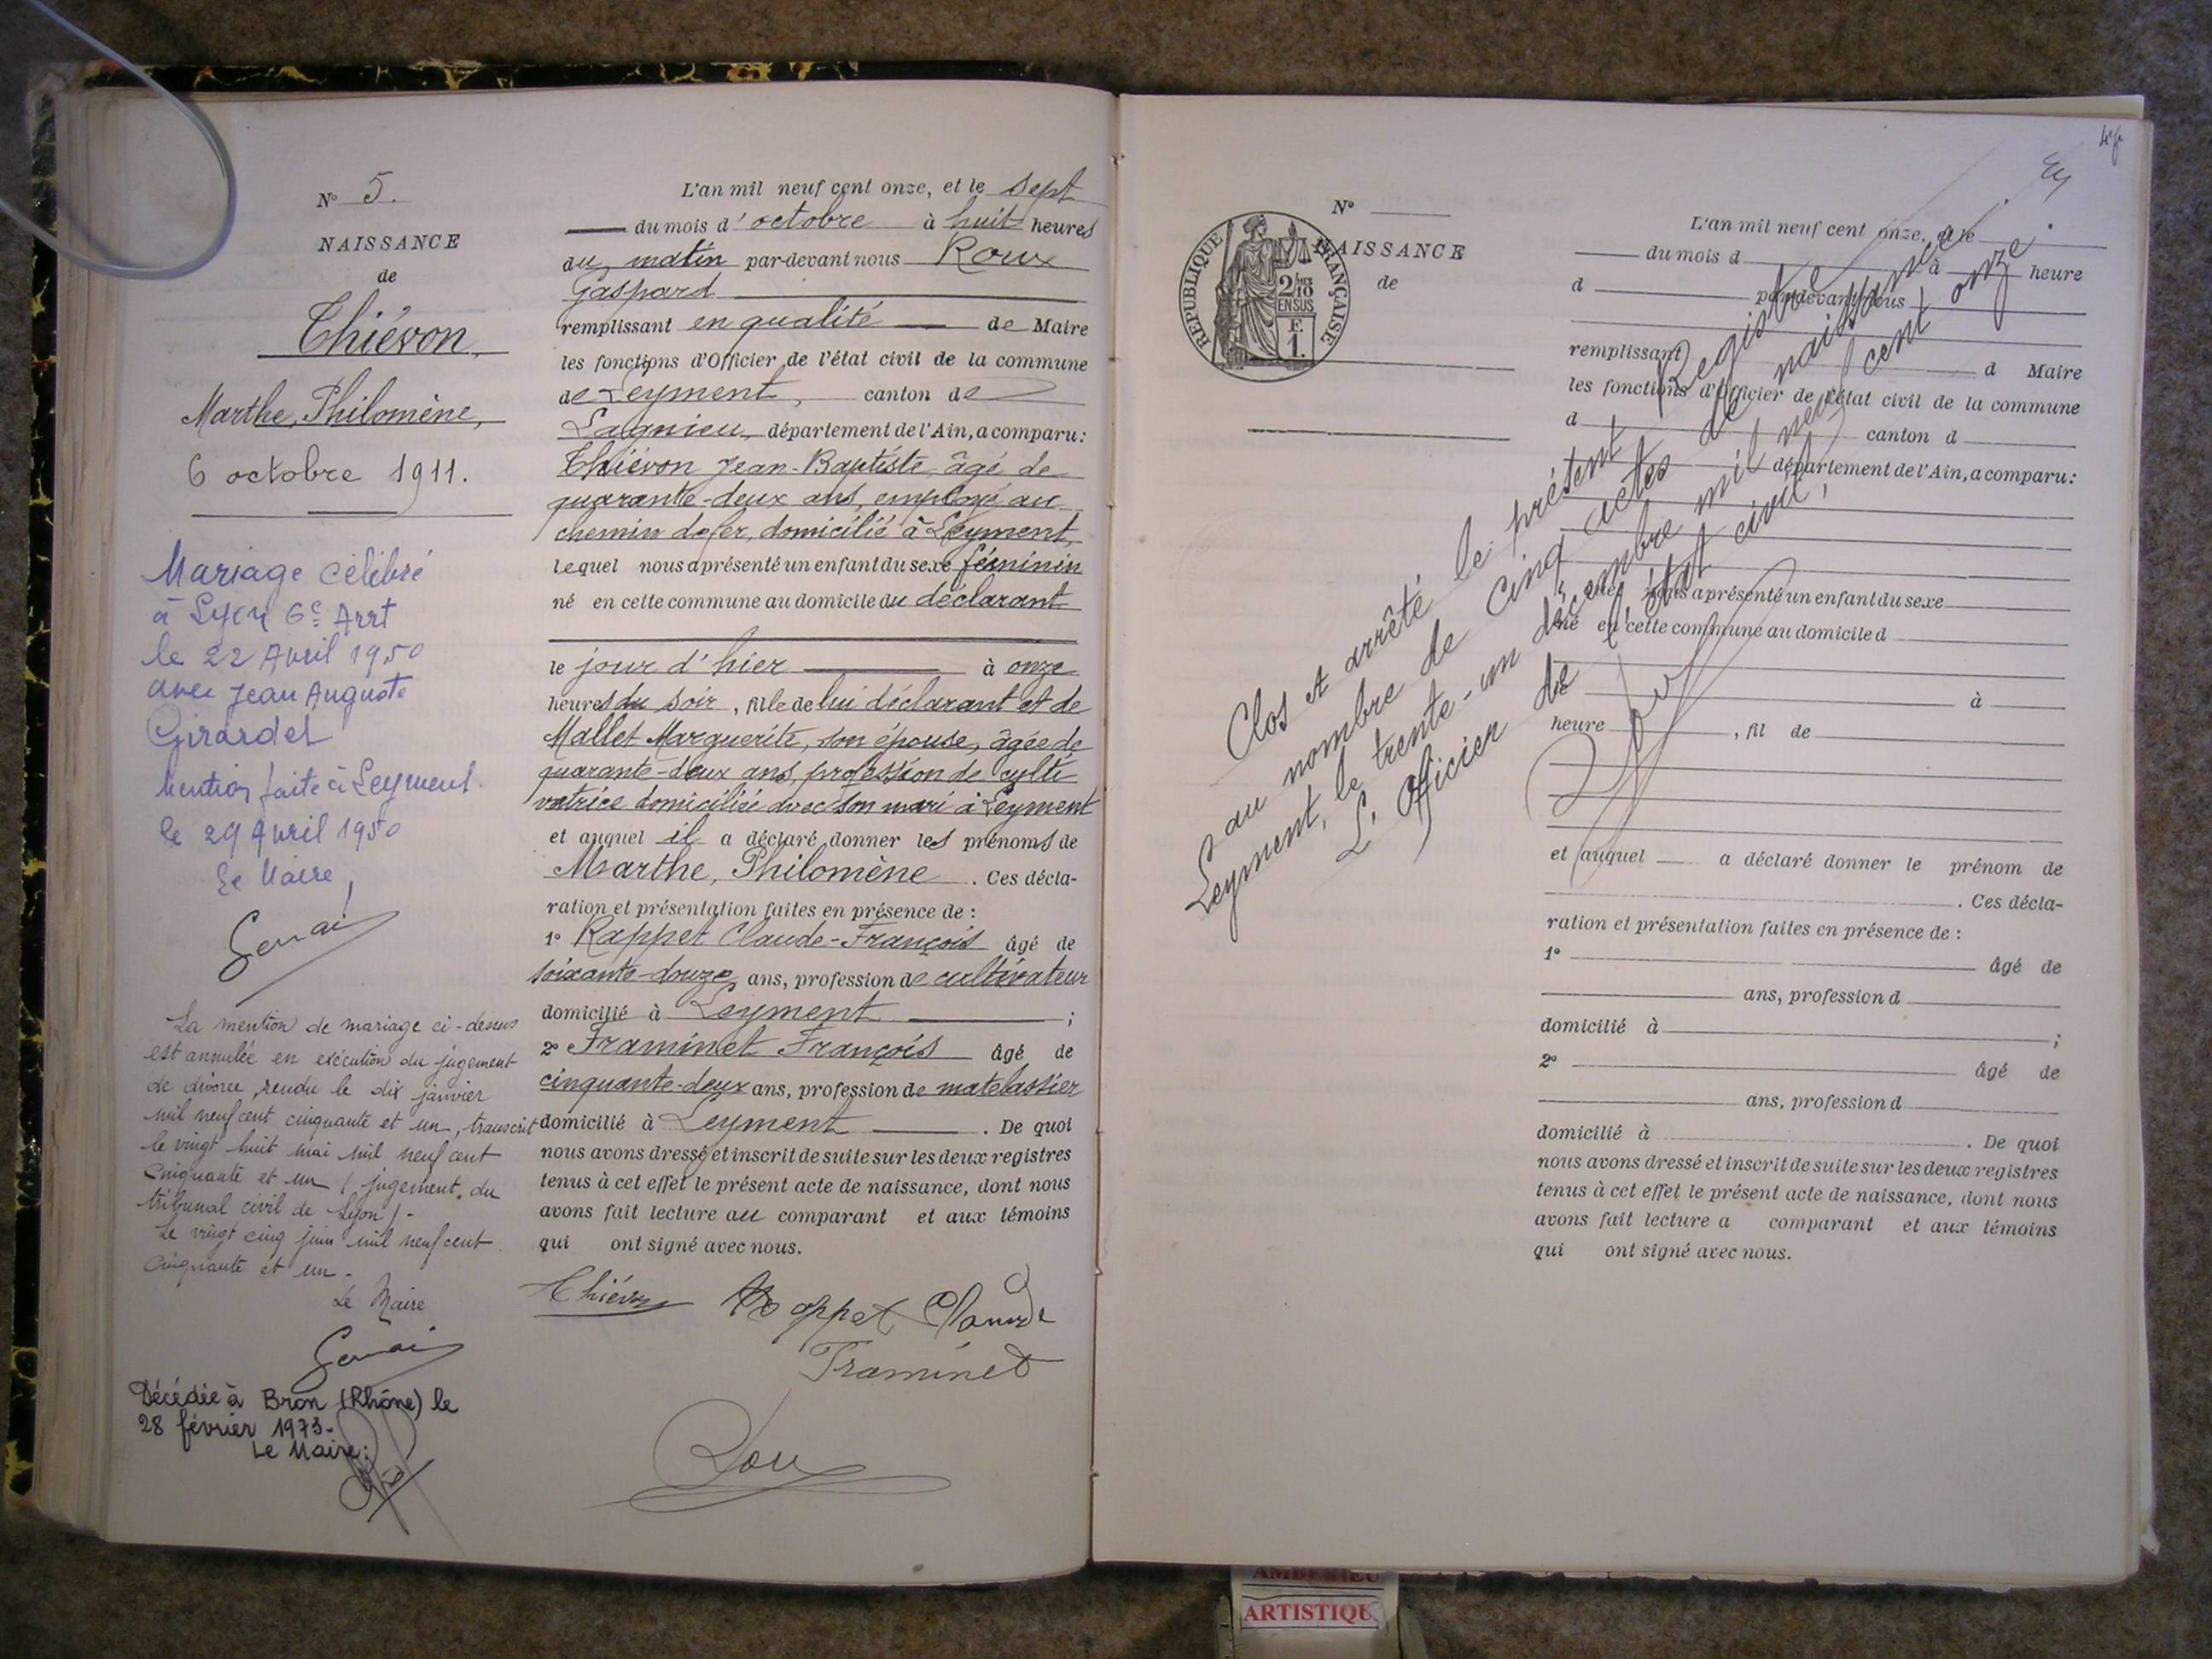 N° 5.
NAISSANCE
de
Thiévon,
Marthe, Philomène,
6 octobre 1911.
Mariage célébré
à Lyon 6e Arrt
le 22 Avril 1950
avec Jean Auguste
Girardet
Mention faite à Leyment.
le 29 Avril 1950
Le Maire,
La mention de mariage ci-dessus
est annulée en exécution du jugement
de divorce, rendu le dix janvier
mil neuf cent cinquante et un, transcrit
le vingt huit mai mil neuf cent
cinquante et un (jugement du
tribunal civil de Lyon) -
Le vingt cinq juin mil neuf cent
cinquante et un -
Le Maire
Décédée à Bron (Rhône) le
28 février 1973-
Le Maire:
L'an mil neuf cent onze, et le sept
du mois d'octobre à huit heures
du matin par-devant nous Roux
Gaspard
remplissant en qualité de Maire
les fonctions d'Officier de l'état civil de la commune
de Leyment, canton de
Lagnieu, département de l'Ain, a comparu:
Thiévon Jean-Baptiste, âgé de
quarante-deux ans, employé au
chemin de fer, domicilié à Leyment,
lequel nous a présenté un enfant du sexe féminin
né en cette commune au domicile du déclarant
le jour d'hier à onze
heures du soir, fille de lui déclarant et de
Mallet Marguerite, son épouse, âgée de
quarante-deux ans, profession de culti
vatrice domiciliée avec son mari à Leyment
et auquel il a déclaré donner les prénoms de
Marthe, Philomène. Ces décla-
ration et présentation faites en présence de :
1° Rappet Claude-François âgé de
soixante-douze ans, profession de cultivateur
domicilié à Leyment ;
2° Traminet François âgé de
cinquante-deux ans, profession de matelassier
domicilié à Leyment. De quoi
nous avons dressé et inscrit de suite sur les deux registres
tenus à cet effet le présent acte de naissance, dont nous
avons fait lecture au comparant et aux témoins
qui ont signé avec nous.
Thiévon Rappet Claude
Traminet
Roux
REPUBLIQUE FRANÇAISE
2/10 EN SUS
F.
1.
N°
NAISSANCE
de
L'an mil neuf cent onze, et le
du mois d à heure
d par-devant nous
remplissant d Maire
les fonctions d'Officier de l'état civil de la commune
d canton d
département de l'Ain, a comparu:
lequel nous a présenté un enfant du sexe
né en cette commune au domicile d
le à
heure , fil de
et auquel a déclaré donner le prénom de
. Ces décla-
ration et présentation faites en présence de :
1° âgé de
ans, profession d
domicilié à ;
2° âgé de
ans, profession d
domicilié à . De quoi
nous avons dressé et inscrit de suite sur les deux registres
tenus à cet effet le présent acte de naissance, dont nous
avons fait lecture a comparant et aux témoins
qui ont signé avec nous.
Clos et arrêté le présent Registre
au nombre de cinq actes de naissance.
Leyment, le trente-un décembre mil neuf cent onze.
L'Officier de l'état civil,
AMBERIEU
ARTISTIQU